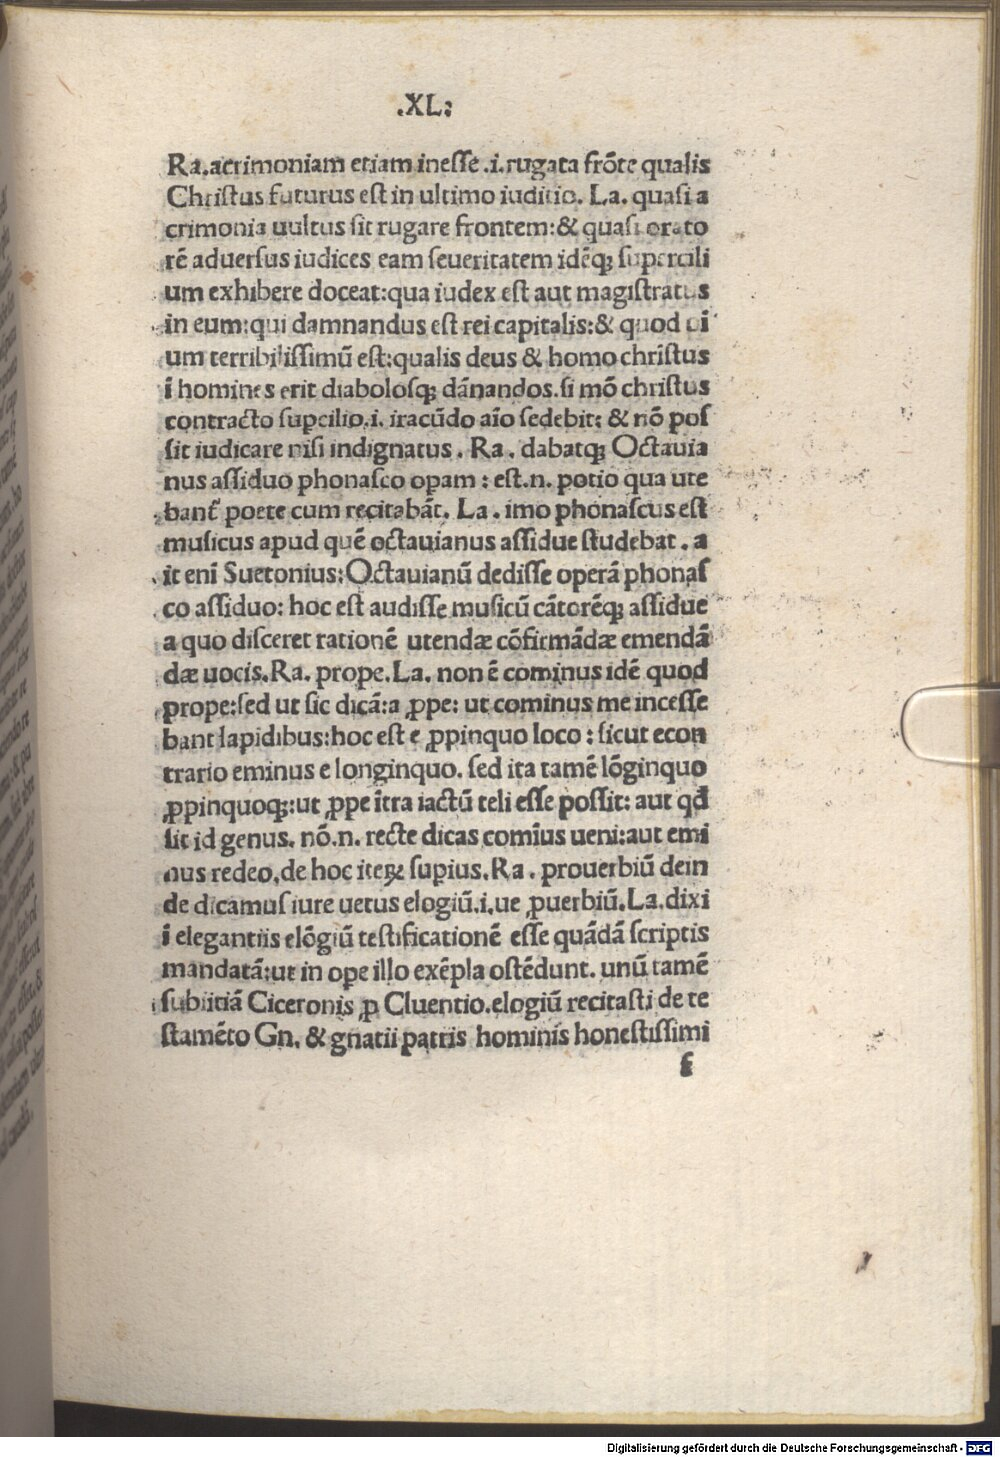 .XL:
Ra.acrimoniam etiam inesse .i.rugata frōte qualis
Christus futurus est in ultimo iuditio. La. quasi a
crimonia uultus sit rugare frontem:& quasi orato
rē aduersus iudices eam seueritatem idēq; supercili
um exhibere doceat:qua iudex est aut magistratus
in eum:qui damnandus est rei capitalis:& quod ui
um terribilissimū est:qualis deus & homo christus
ī homines erit diabolosq; dānandos.si mō christus
contracto supcilio.i. iracūdo aīo sedebit: & nō pos
sit iudicare nisi indignatus. Ra. dabatq; Octauia
nus assiduo phonasco opam : est.n. potio qua ute
bant̄ poete cum recitabāt. La. imo phonascus est
musicus apud quē octauianus assidue studebat. a
it enī Suetonius:Octauianū dedisse operā phonas
co assiduo: hoc est audisse musicū cātorēq; assidue
a quo disceret rationē utendæ cōfirmādæ emendā
dæ uocis.Ra. prope.La. non ē cominus idē quod
prope:sed ut sic dicā:a ꝓpe: ut cominus me incesse
bant lapidibus:hoc est e ꝓpinquo loco : sicut econ
trario eminus e longinquo. sed ita tamē lōginquo
ꝓpinquoq;:ut ꝓpe ītra iactū teli esse possit: aut qđ
sit id genus. nō.n. recte dicas comīus ueni:aut emi
nus redeo.de hoc iteꝝ supius.Ra. prouerbiū dein
de dicamus iure uetus elogiū.i.ue ꝓuerbiū.La.dixi
ī elegantiis elōgiū testificationē esse quādā scriptis
mandatā:ut in ope illo exēpla ostēdunt. unū tamē
subiitiā Ciceronis ꝓ Cluentio.elogiū recitasti de te
stamēto Gn. & gnatii patris hominis honestissimi
f
Digitalisierung gefördert durch die Deutsche Forschungsgemeinschaft - DFG